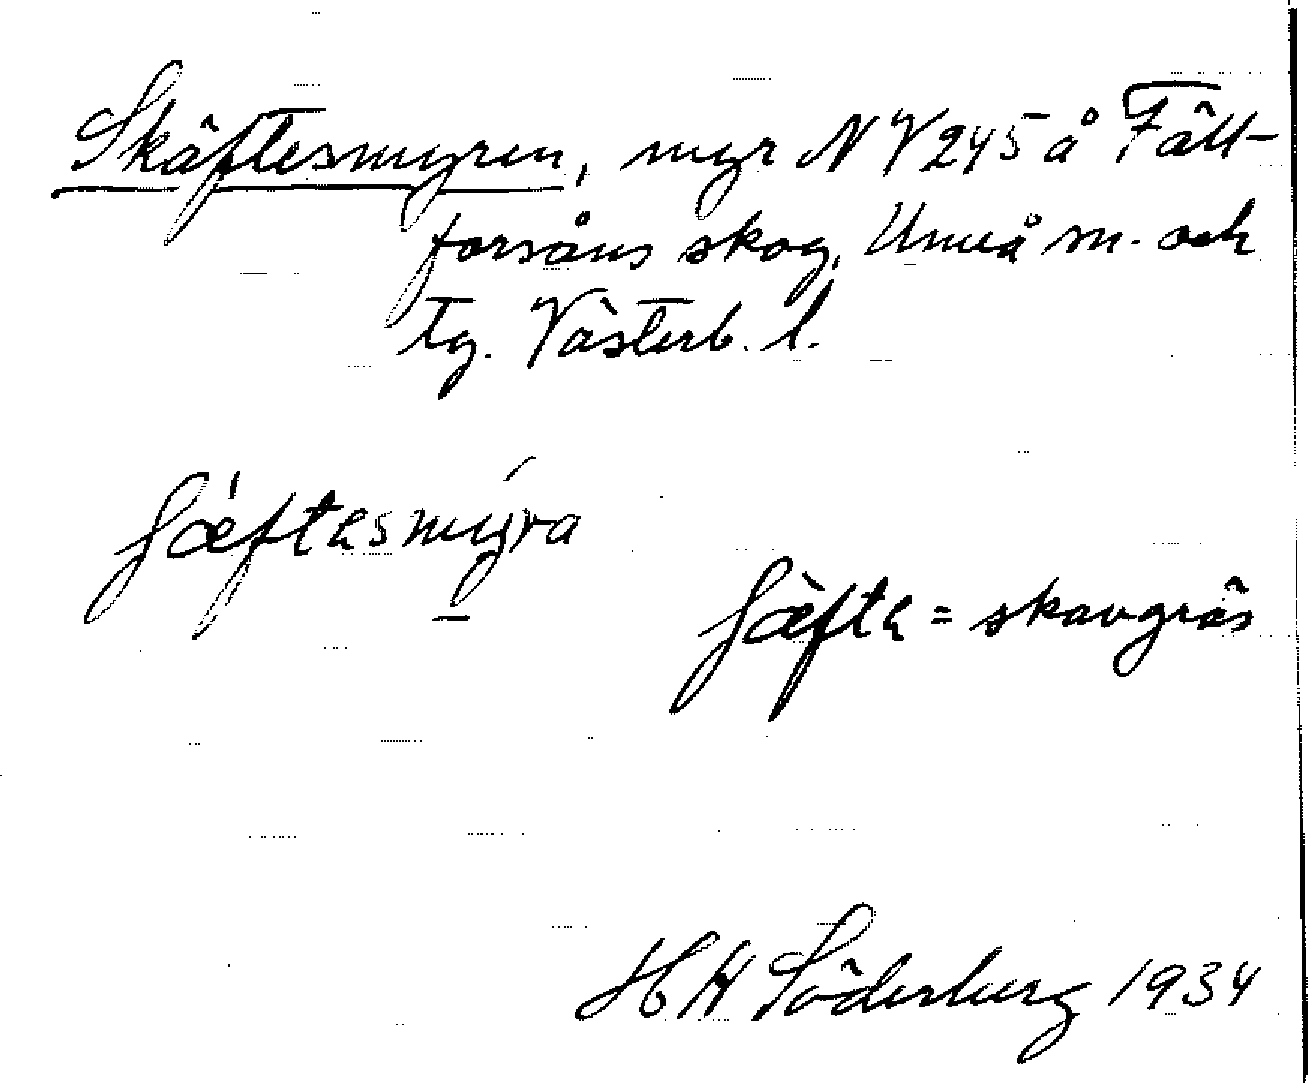 Skäftesmyren, myr N V 245 å Fält-
forsåns skog, Umeå m. och
tg. Västerb. l.
ʃæ̀ftesmyra
ʃæ̀fte = skavgräs
H W Söderberg 1934